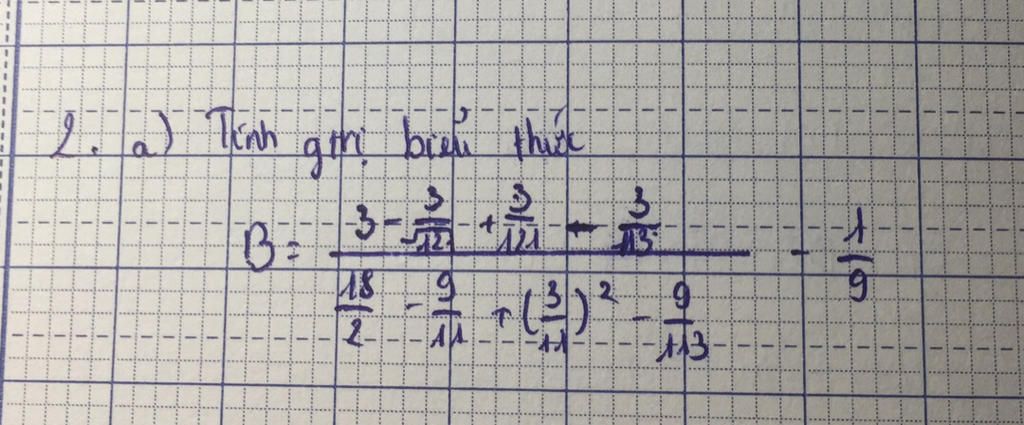 2. a) Tính gtrị biểu thức
3 - 3/12 + 3/121 - 3/113
B = ―――――――――― - 1/9
18/2 - 9/11 + (3/11)² - 9/113